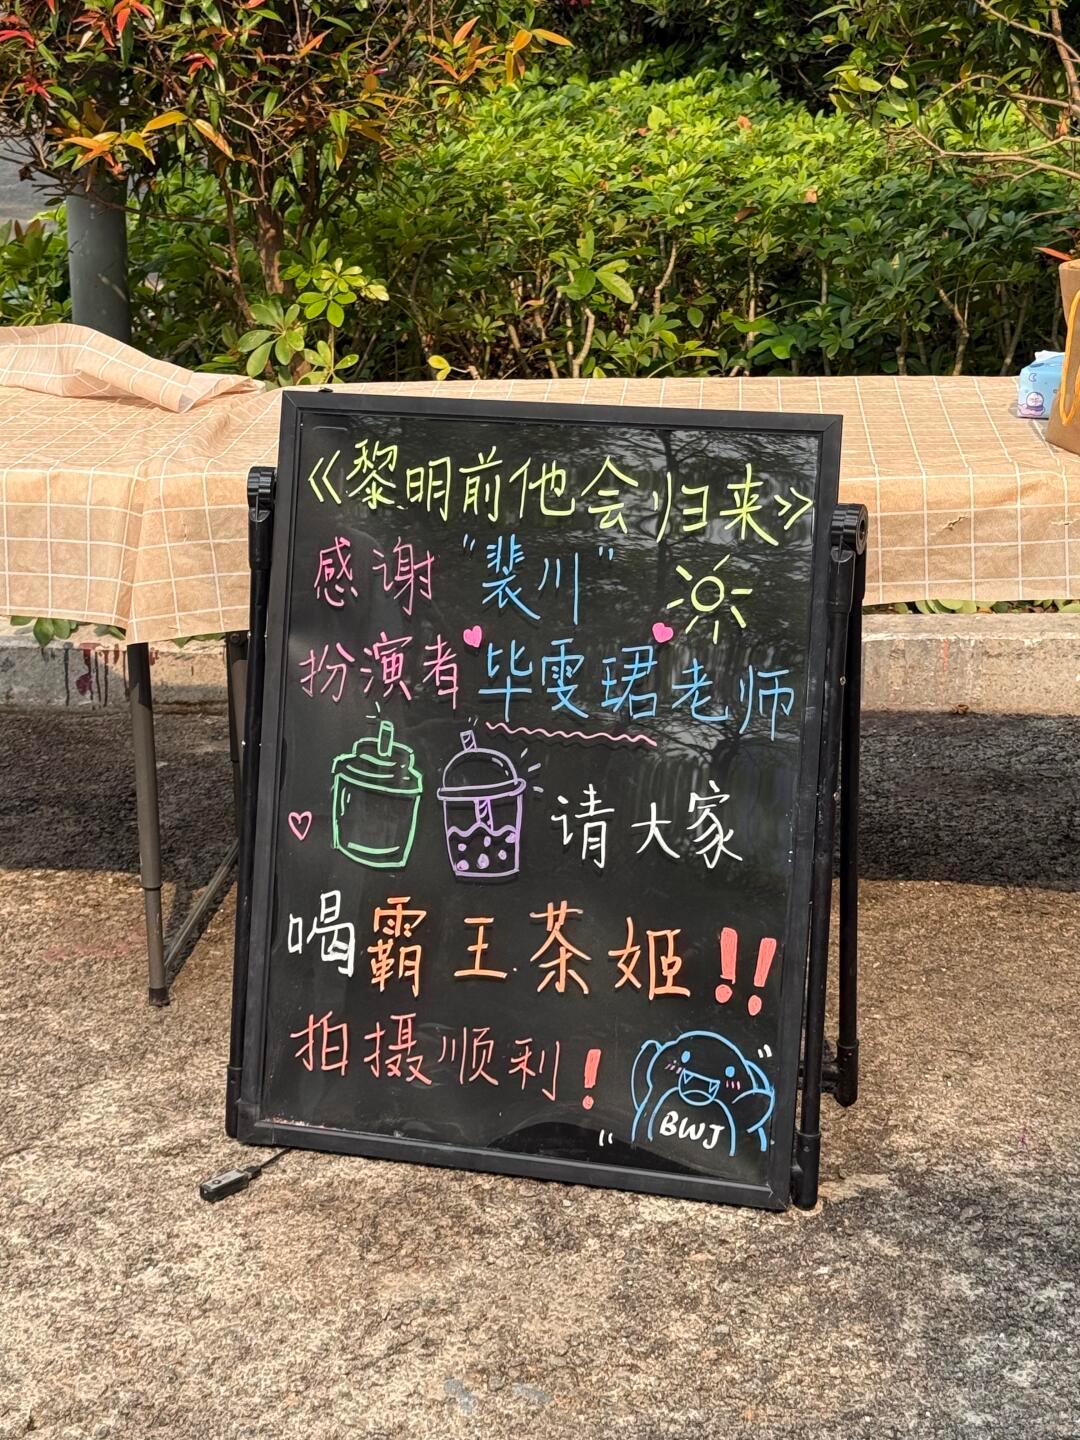 《黎明前他会归来》
感谢"裴川"
扮演者毕雯珺老师
请大家
喝霸王茶姬!!
拍摄顺利!
BWJ